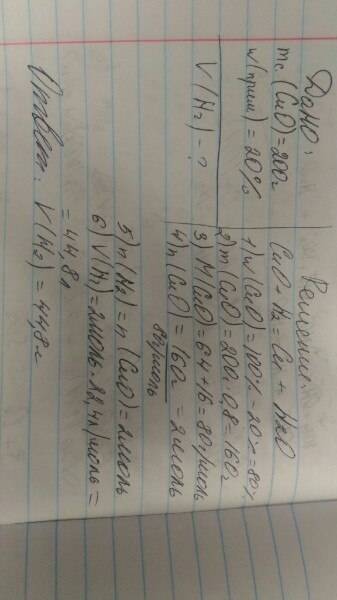 Дано:
mс. (CuO) = 200г
w(прим) = 20%
V(H₂) - ?
Решение:
CuO + H₂ = Cu + H₂O
1) w(CuO) = 100% - 20% = 80%
2) m(CuO) = 200 · 0,8 = 160г
3) M(CuO) = 64 + 16 = 80г/моль
4) n(CuO) = 160г = 2моль
80г/моль
5) n(H₂) = n(CuO) = 2моль
6) V(H₂) = 2моль · 22,4л/моль =
= 44,8л
Ответ: V(H₂) = 44,8л